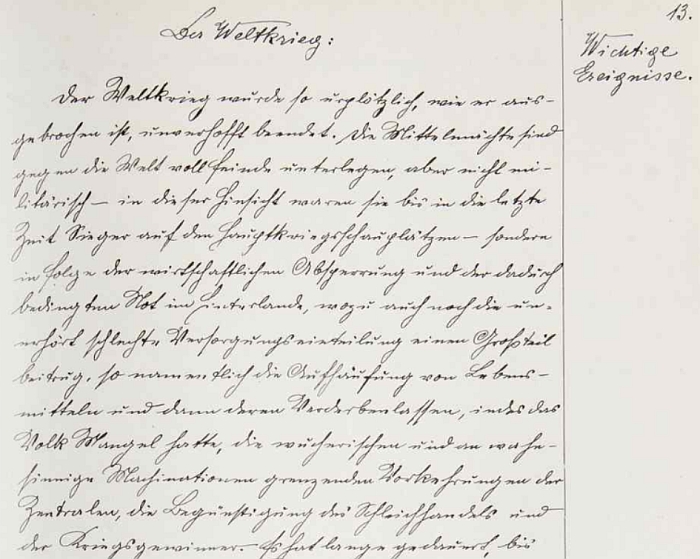 13.
Der Weltkrieg:
Wichtige
Ereignisse.
Der Weltkrieg wurde so urplötzlich, wie er aus-
gebrochen ist, unverhofft beendet. Die Mittelmächte sind
gegen die Welt voll Feinde unterlegen, aber nicht mi-
litärisch – in dieser Hinsicht waren sie bis in die letzte
Zeit Sieger auf den Hauptkriegsschauplätzen – sondern
in Folge der wirtschaftlichen Absperrung und der dadurch
bedingten Not im Hinterlande, wozu auch noch die un-
erhört schlechte Versorgungseinteilung einen Großteil
beitrug, so namentlich die Aufhäufung von Lebens-
mitteln und dann deren Verderbenlassen, indes das
Volk Mangel hatte, die wucherischen und an wahn-
sinnige Machinationen grenzenden Vorkehrungen der
Zentralen, die Begünstigung des Schleichhandels und
der Kriegsgewinner. – Es hat lange gedauert, bis